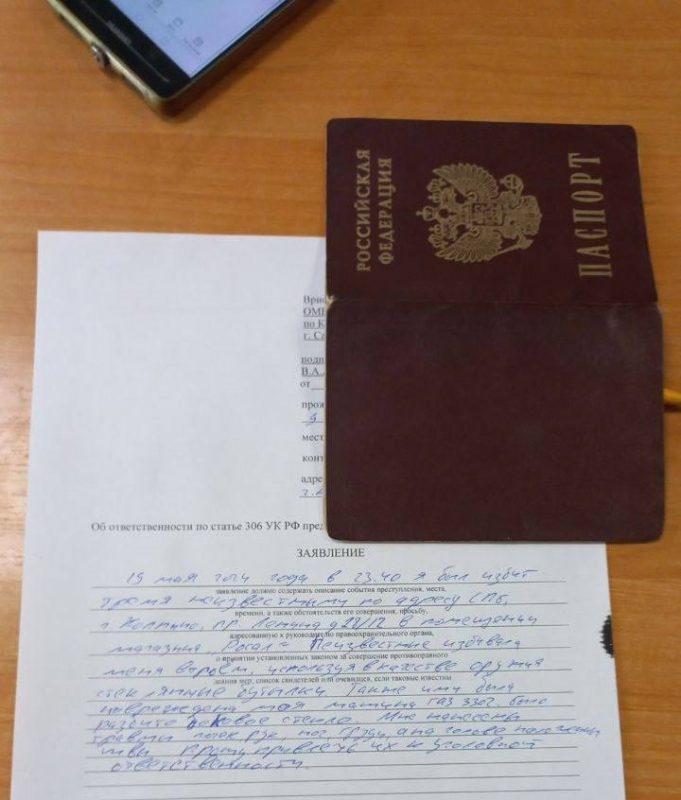 HUAWEI
РОССИЙСКАЯ
ФЕДЕРАЦИЯ
ПАСПОРТ
ОМ
по К
г. С
подп
В.А.
от
прож
мест
конт
адре
Об ответственности по статье 306 УК РФ пред
ЗАЯВЛЕНИЕ
19 мая года в 23.40 я был избит
заявление должно содержать описание события преступления, места,
тремя неизвестными по адресу СПб,
времени, а также обстоятельств его совершения, просьбу,
г. Колпино, пр. Ленина в помещении
адресованную к руководителю правоохранительного органа,
магазина Неизвестные избивали
о принятии установленных законом за совершение противоправного
меня втроём, используя в качестве оружия
деяния мер, список свидетелей или очевидцев, если таковые известны
стеклянные бутылки. Также ими была
повреждена моя машина ГАЗ 3302. было
разбито боковое стекло. Мне нанесены
травмы рук, ног, груди, а на голове наложены
швы. Прошу привлечь их к уголовной
ответственности.